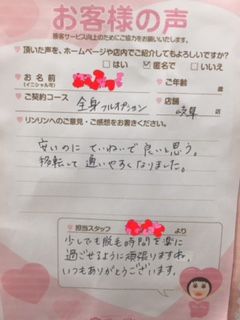 お客様の声
接客サービス向上のためにご協力をお願いいたします。
♥頂いた声を、ホームページや店内でご紹介してもよろしいですか?
□はい ☑匿名で □いいえ
♥お名前
(イニシャル可)
♥ご年齢
歳
♥ご契約コース
全身フルオプション
♥店舗
岐阜
店
♥リンリンへのご意見・ご感想をお書きください。
安いのにていねいで良いと思う。
移転して通いやすくなりました。
担当スタッフ
少しでも脱毛時間を楽に
過ごせるように頑張りますね。
いつもありがとうございます。